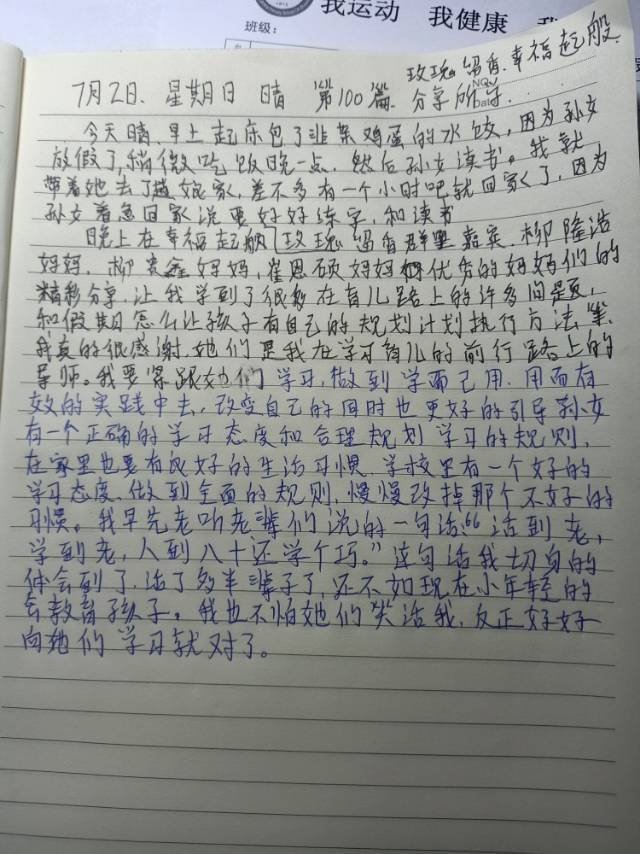 我运动 我健康
班级:
玫瑰留香.幸福起般.
7月2日. 星期日 晴 第100篇. 分享所学.
今天晴.早上起床包了韭菜鸡蛋的水饺,因为孙女
放假了,稍微吃饭晚一点.然后孙女读书。我就
带着她去了趟娘家,差不多有一个小时吧就回家了,因为
孙女着急回家说要好好练字,和读书
晚上在幸福起般玫瑰留香群里嘉宾.柳隆浩
妈妈.柳贵鑫妈妈,崔恩硕妈妈 优秀的妈妈们的
精彩分享.让我学到了很多在育儿路上的许多问题,
和假期怎么让孩子有自己的规划计划执行方法等.
我真的很感谢.她们是我在学习育儿的前行路上的
导师。我要紧跟她们学习,做到学而己用.用而有
效的实践中去,改变自己的同时也更好的引导孙女
有一个正确的学习态度和合理规划学习的规则,
在家里也要有良好的生活习惯.学校里有一个好的
学习态度.做到全面的规则.慢慢改掉那个不好的
习惯。我早先老听老辈们说的一句话“活到老,
学到老,人到八十还学个巧。”这句话我切身的
体会到了.活了多半辈子了,还不如现在小年轻的
会教育孩子。我也不怕她们笑话我.反正好好
向她们学习就对了。